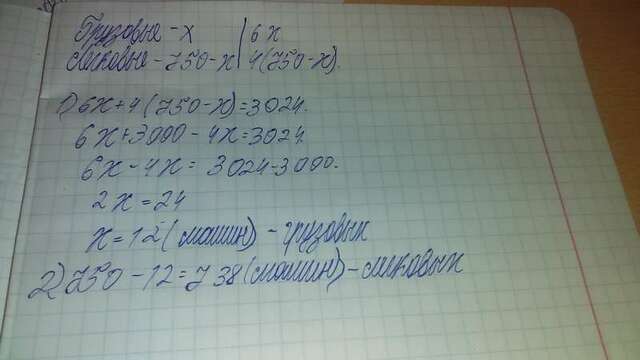 Грузовые - х | 6х
Легковые - 750-х | 4(750-х).
1) 6х+4(750-х)=3024.
6х+3000-4х=3024.
6х-4х= 3024-3000.
2х=24
х=12(машин) - грузовых
2) 750-12=738(машин)-легковых